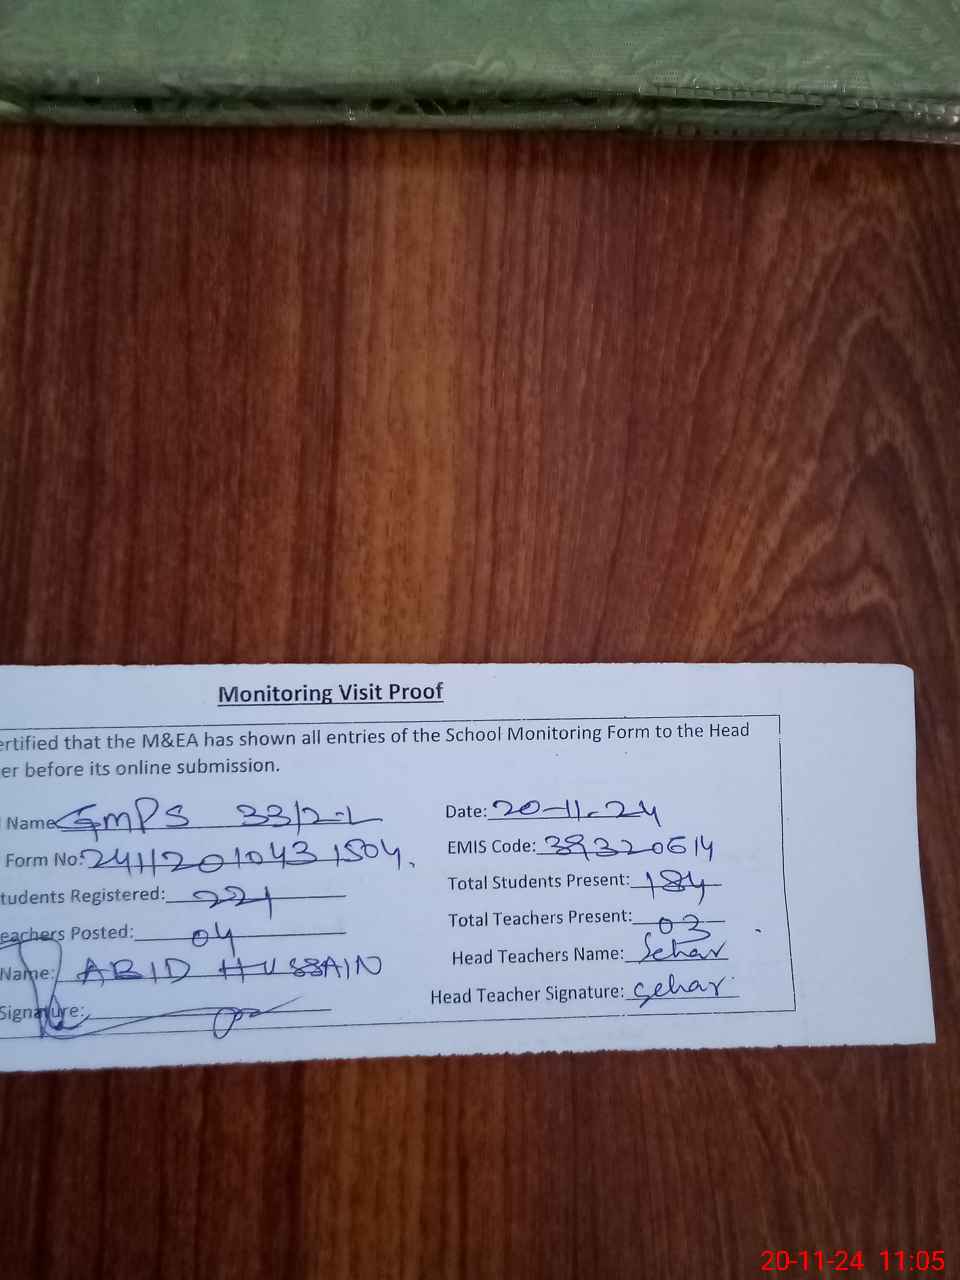 Monitoring Visit Proof
ertified that the M&EA has shown all entries of the School Monitoring Form to the Head
er before its online submission.
Name GMPS 33/2-L Date: 20-11-24
Form No: 24112010431504. EMIS Code: 39320614
tudents Registered: 221 Total Students Present: 184
eachers Posted: 04 Total Teachers Present: 03
Name: ABID HUSSAIN Head Teachers Name: Sehar
Signature: Head Teacher Signature: Sehar
20-11-24 11:05